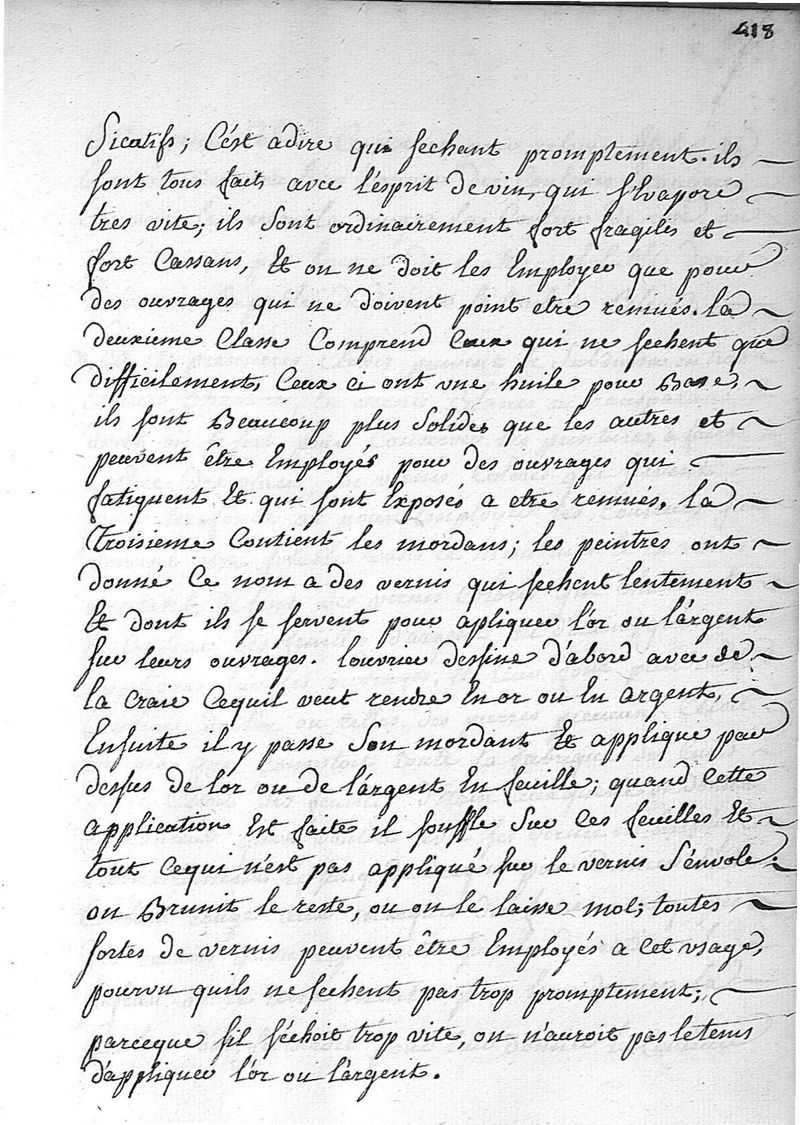 418
Sicatifs; C'est adire qui sechant promptement. ils
sont tous faits avec l'esprit de vin, qui s'Evapore
tres vite; ils sont ordinairement fort fragiles et
fort Cassans, Et on ne doit les Employer que pour
des ouvrages qui ne doivent point etre remués. la
deuxieme Classe Comprend Ceux qui ne sechent que
difficilement, Ceux ci ont une huile pour Base,
ils sont Beaucoup plus Solides que les autres et
peuvent être Employés pour des ouvrages qui
fatiguent Et qui sont Exposés a etre remués. la
Troisieme Contient les mordans; les peintres ont
donné Ce nom a des vernis qui sechent lentement
Et dont ils se servent pour apliquer l'or ou l'argent
sur leurs ouvrages. louvrier dessine d'abord avec de
la Craie Cequil veut rendre En or ou En argent,
Ensuite il y passe Son mordant Et applique par
dessus de lor ou de l'argent En feuille; quand Cette
application Est faite il souffle Sur Ces feuilles Et
tout Cequi n'est pas appliqué sur le vernis S'énvole.
on Brunit le reste, ou on le laisse mol; toutes
sortes de vernis peuvent être Employés a Cet usage,
pourvu quils ne sechent pas trop promptement;
parceque sil séchoit trop vite, on n'auroit pas le tems
d'appliquer l'or ou l'argent.